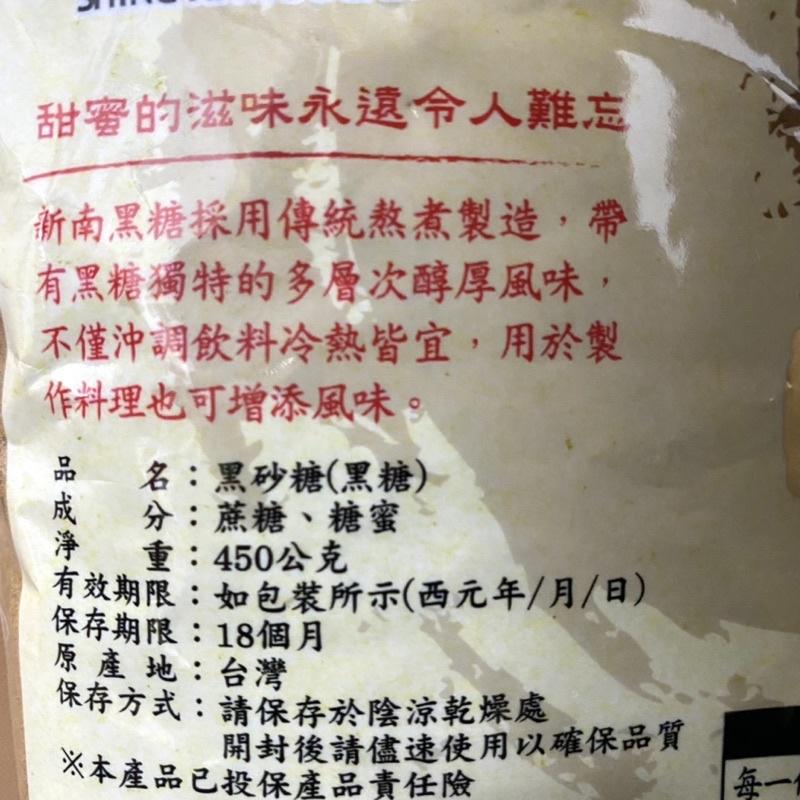 甜蜜的滋味永遠令人難忘
新南黑糖採用傳統熬煮製造，帶
有黑糖獨特的多層次醇厚風味，
不僅沖調飲料冷熱皆宜，用於製
作料理也可增添風味。
品名：黑砂糖(黑糖)
成分：蔗糖、糖蜜
淨重：450公克
有效期限：如包裝所示(西元年/月/日)
保存期限：18個月
原產地：台灣
保存方式：請保存於陰涼乾燥處
開封後請儘速使用以確保品質
※本產品已投保產品責任險
每一